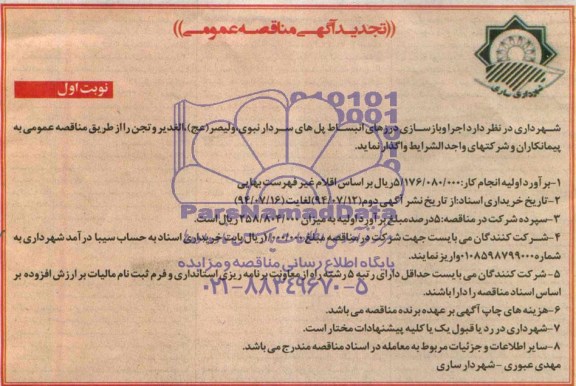 ((تجدید آگهی مناقصه عمومی))
شهرداری ساری
نوبت اول
شهرداری در نظر دارد اجرا وبازسازی درزهای انبساط پل های سردار نبوی، ولیعصر (عج)، الغدیر و تجن را از طریق مناقصه عمومی به
پیمانکاران و شرکتهای واجدالشرایط واگذار نماید.
۱-برآورد اولیه انجام کار: ۵/۱۷۶/۰۸۰/۰۰۰ریال بر اساس اقلام غیر فهرست بهایی
۲-تاریخ خریداری اسناد: از تاریخ نشر آگهی دوم(۹۴/۰۷/۱۲)لغایت(۹۴/۰۷/۱۶)
۳-سپرده شرکت در مناقصه: ۵درصد مبلغ برآورد اولیه به میزان ریال است.
۴-شرکت کنندگان می بایست جهت شرکت در مناقصه مبلغ ریال بابت خریداری اسناد به حساب سیبا درآمد شهرداری به
شماره ۰۱۰۸۵۹۸۷۹۹۰۰۰واریز نمایند.
۵-شرکت کنندگان می بایست حداقل دارای رتبه ۵ رشته راه از معاونت برنامه ریزی استانداری و فرم ثبت نام مالیات بر ارزش افزوده بر
اساس اسناد مناقصه را دارا باشند.
۶-هزینه های چاپ آگهی بر عهده برنده مناقصه می باشد.
۷-شهرداری در رد یا قبول یک یا کلیه پیشنهادات مختار است.
۸-سایر اطلاعات و جزئیات مربوط به معامله در اسناد مناقصه مندرج می باشد.
مهدی عبوری -شهردار ساری
ParsNamadData
پایگاه اطلاع رسانی مناقصه و مزایده
۰۲۱-۸۸۳۴۹۶۷۰-۵